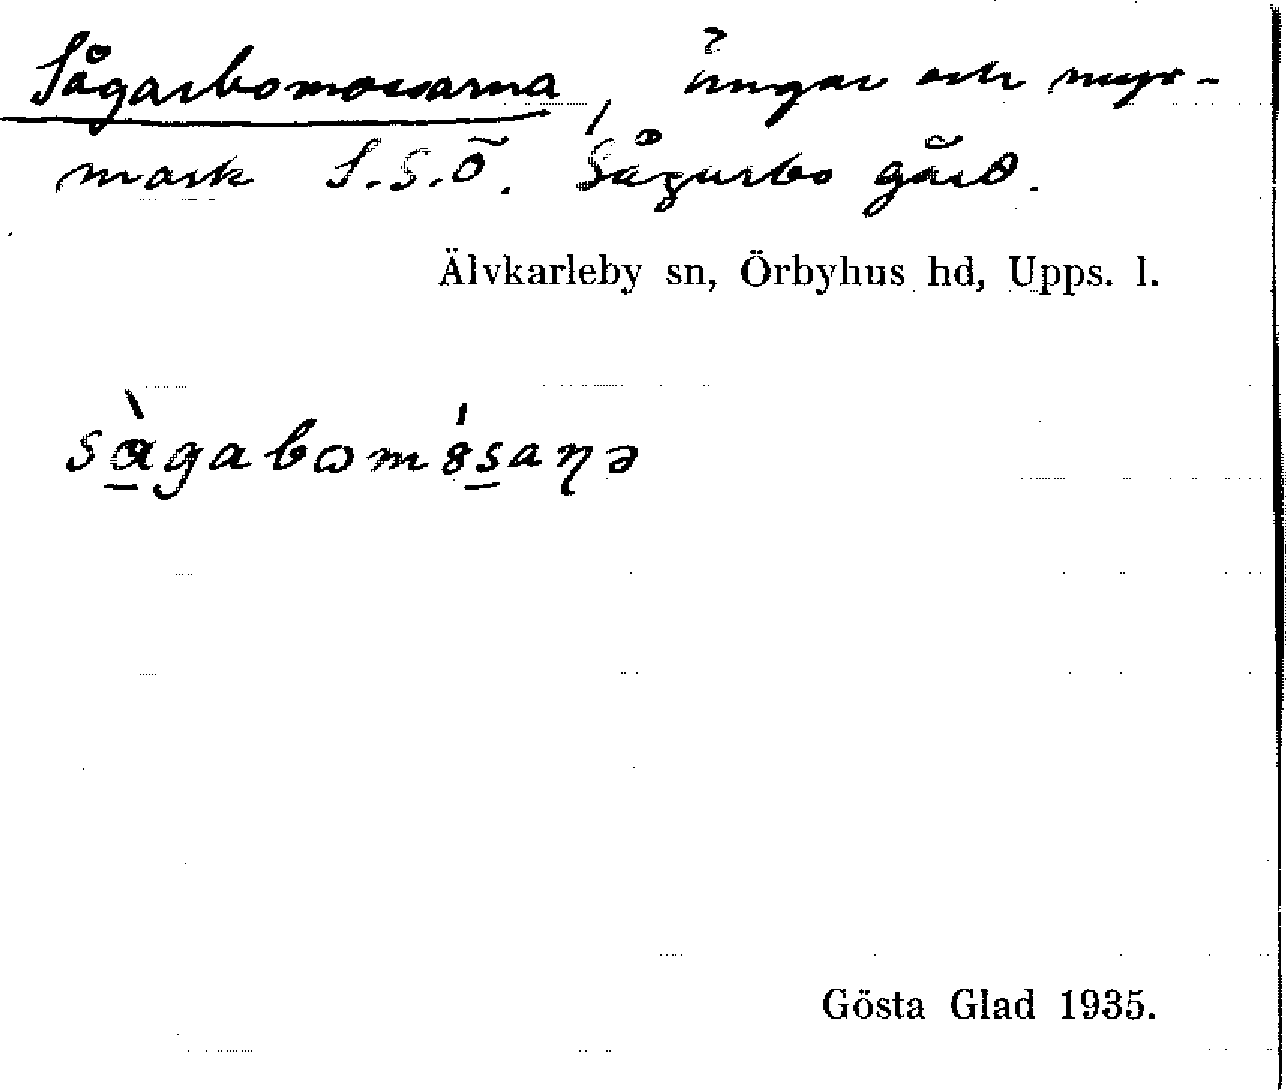 Sågarbomossarna, ängar och myr-
mark S.S.Ö. Sågarbo gård.
Älvkarleby sn, Örbyhus hd, Upps. l.
sàgabωmósaƞə
Gösta Glad 1935.